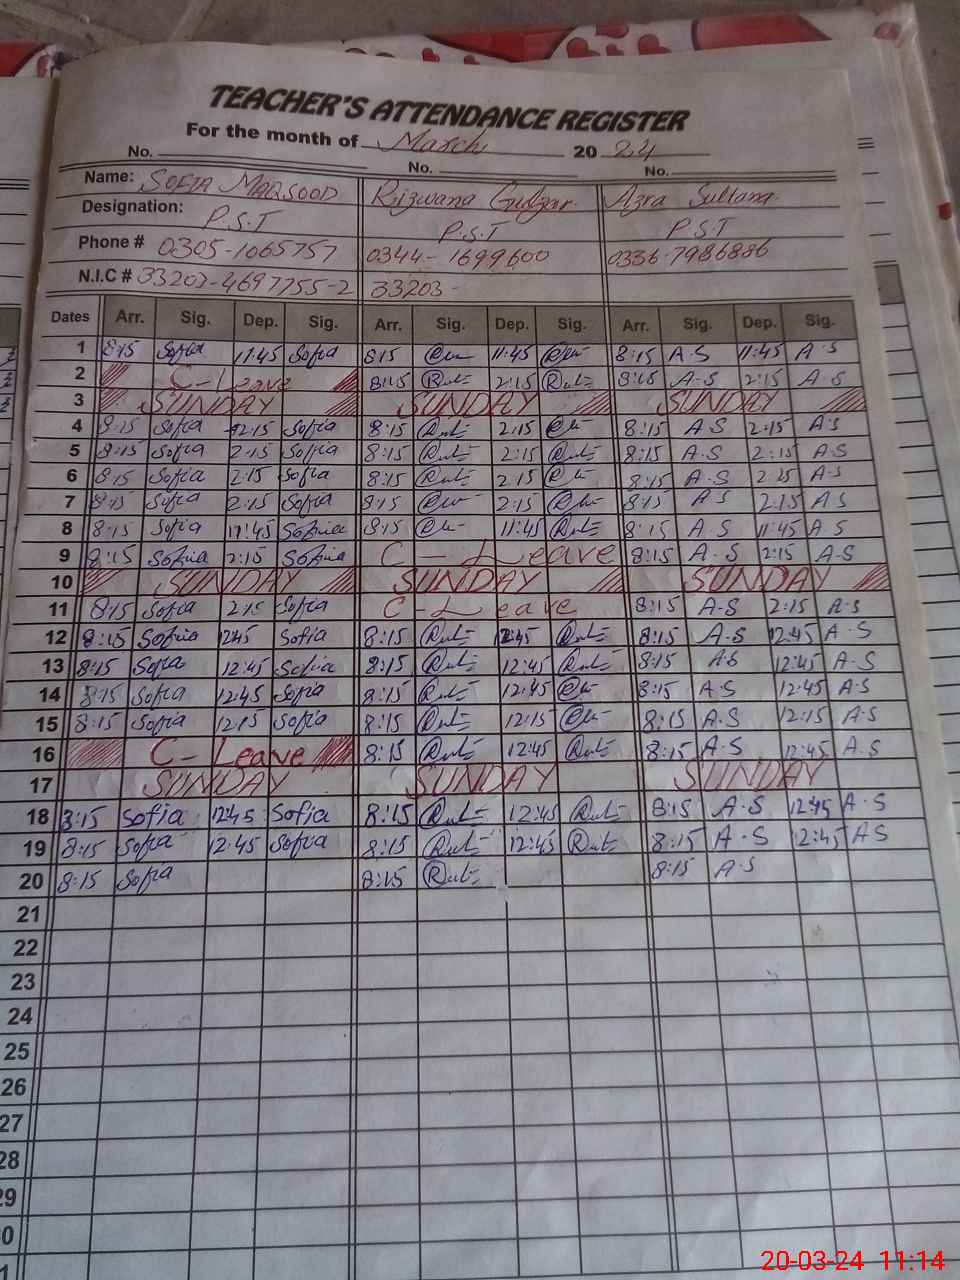 TEACHER'S ATTENDANCE REGISTER
For the month of March 20 24
No. No. No.
Name: SOFIA MAQSOOD Rizwana Gulzar Azra Sultana
Designation: P.S.T P.S.T P.S.T
Phone # 0305-1065757 0344-1699600 0336-7986886
N.I.C # 33203-4697755-2 33203-
Dates Arr. Sig. Dep. Sig. Arr. Sig. Dep. Sig. Arr. Sig. Dep. Sig.
1 8:15 Sofia 11:45 Sofia 8:15 11:45 8:15 A.S 11:45 A.S
2 C-Leave 8:15 2:15 8:15 A.S 2:15 A.S
3 SUNDAY SUNDAY SUNDAY
4 8:15 Sofia 2:15 Sofia 8:15 2:15 8:15 A.S 2:15 A.S
5 8:15 Sofia 2:15 Sofia 8:15 2:15 8:15 A.S 2:15 A.S
6 8:15 Sofia 2:15 Sofia 8:15 2:15 8:15 A.S 2:15 A.S
7 8:15 Sofia 2:15 Sofia 8:15 2:15 8:15 A S 2:15 A S
8 8:15 Sofia 11:45 Sofia 8:15 11:45 8:15 A.S 11:45 A.S
9 8:15 Sofia 2:15 Sofia C-Leave 8:15 A.S 2:15 A.S
10 SUNDAY SUNDAY SUNDAY
11 8:15 Sofia 2:15 Sofia C-Leave 8:15 A.S 2:15 A.S
12 8:15 Sofia 12:45 Sofia 8:15 12:45 8:15 A.S 12:45 A.S
13 8:15 Sofia 12:45 Sofia 8:15 12:45 8:15 A.S 12:45 A.S
14 8:15 Sofia 12:45 Sofia 8:15 12:45 8:15 A.S 12:45 A.S
15 8:15 Sofia 12:15 Sofia 8:15 12:15 8:15 A.S 12:15 A.S
16 C-Leave 8:15 12:45 8:15 A.S 12:45 A.S
17 SUNDAY SUNDAY SUNDAY
18 8:15 Sofia 12:45 Sofia 8:15 12:45 8:15 A.S 12:45 A.S
19 8:15 Sofia 12:45 Sofia 8:15 12:45 8:15 A.S 12:45 A S
20 8:15 Sofia 8:15 8:15 A.S
21
22
23
24
25
26
27
28
29
30
20-03-24 11:14